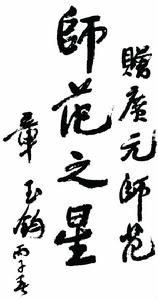 贈廣元師范
師范之星
章玉鈞 丙子春